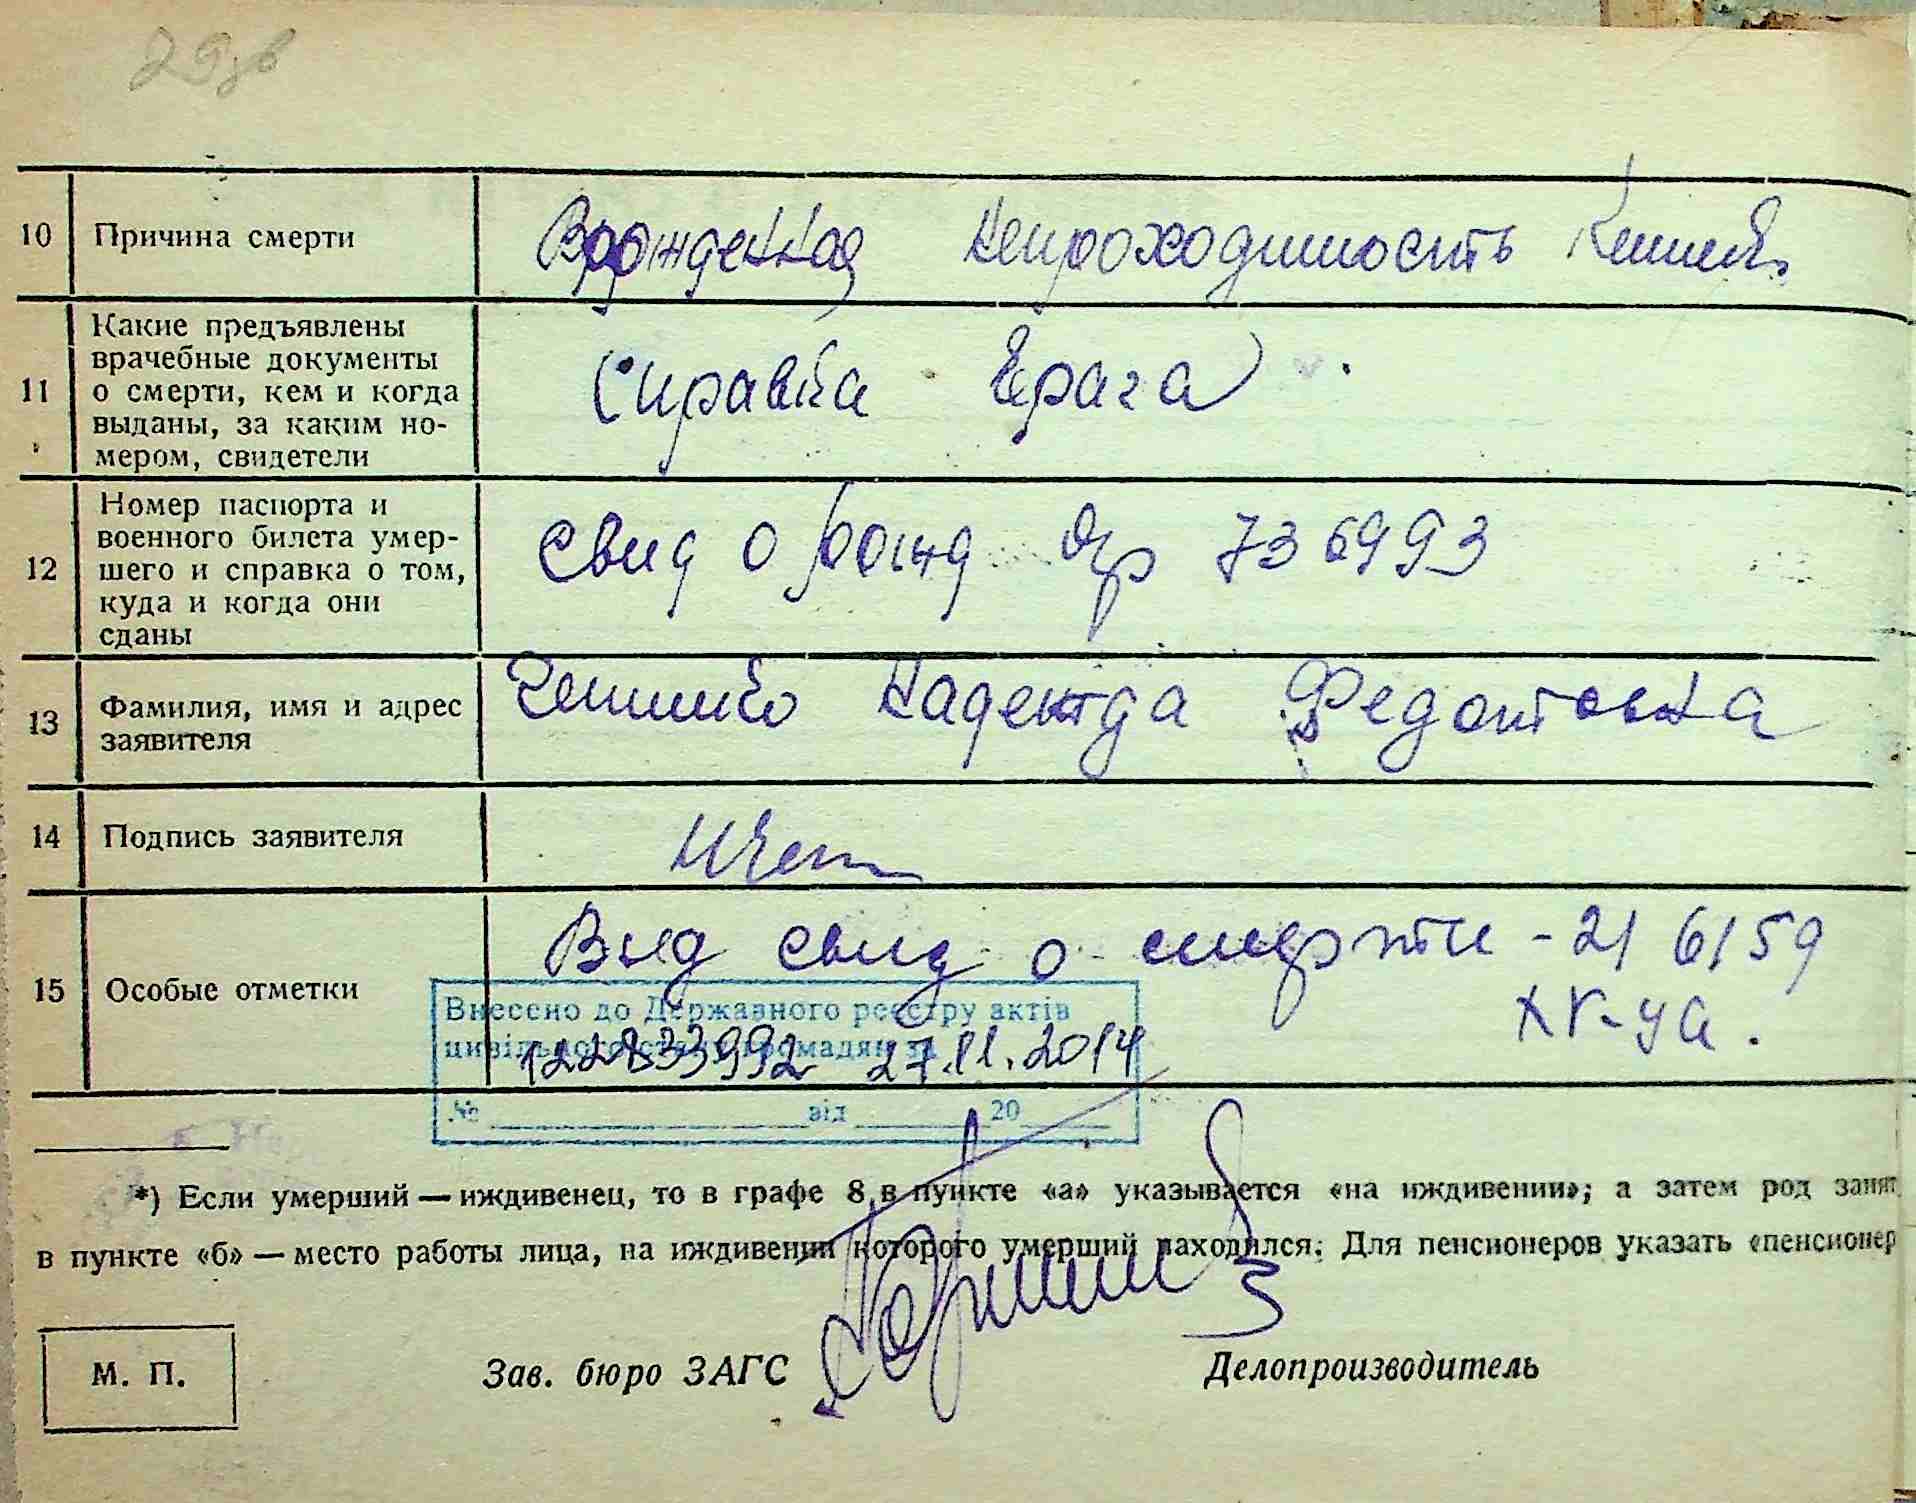 29зв
10 Причина смерти Врожденная непроходимость Кишеч.
11 Какие предъявлены
врачебные документы
о смерти, кем и когда
выданы, за каким но-
мером, свидетели
справка врача
12 Номер паспорта и
военного билета умер-
шего и справка о том,
куда и когда они
сданы
свид о рожд 736993
13 Фамилия, имя и адрес
заявителя
Надежда Федотовна
14 Подпись заявителя
15 Особые отметки
Выд свид о смерти - 216159
Внесено до Державного реєстру актів
цивільного стану громадян за
122833992 27.11.2014
№ від 20
*) Если умерший — иждивенец, то в графе 8, в пункте «а» указывается «на иждивении»; а затем род занят
в пункте «б» — место работы лица, на иждивении которого умерший находился. Для пенсионеров указать «пенсионер
М. П.
Зав. бюро ЗАГС
Делопроизводитель